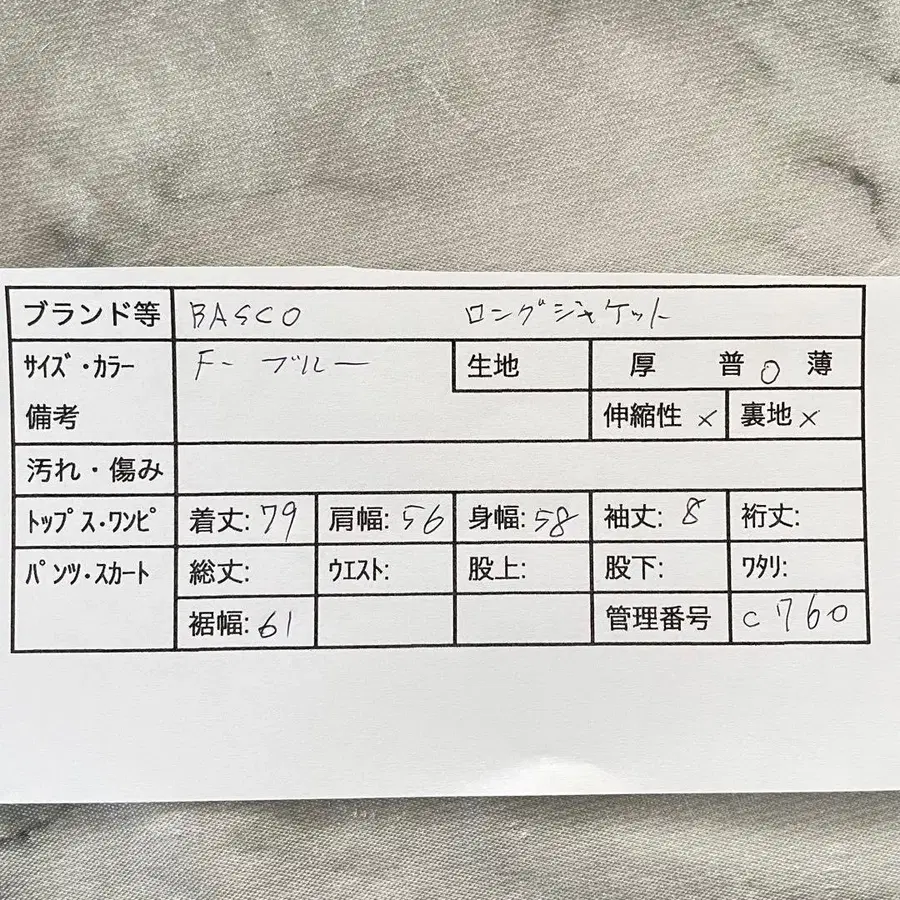 ブランド等 BASCO ロングジャケット
サイズ・カラー F- ブルー 生地 厚 普 ○ 薄
備考 伸縮性 × 裏地 ×
汚れ・傷み
トップス・ワンピ 着丈:79 肩幅:56 身幅:58 袖丈:8 裄丈:
パンツ・スカート 総丈: ウエスト: 股上: 股下: ワタリ:
裾幅:61 管理番号 C760